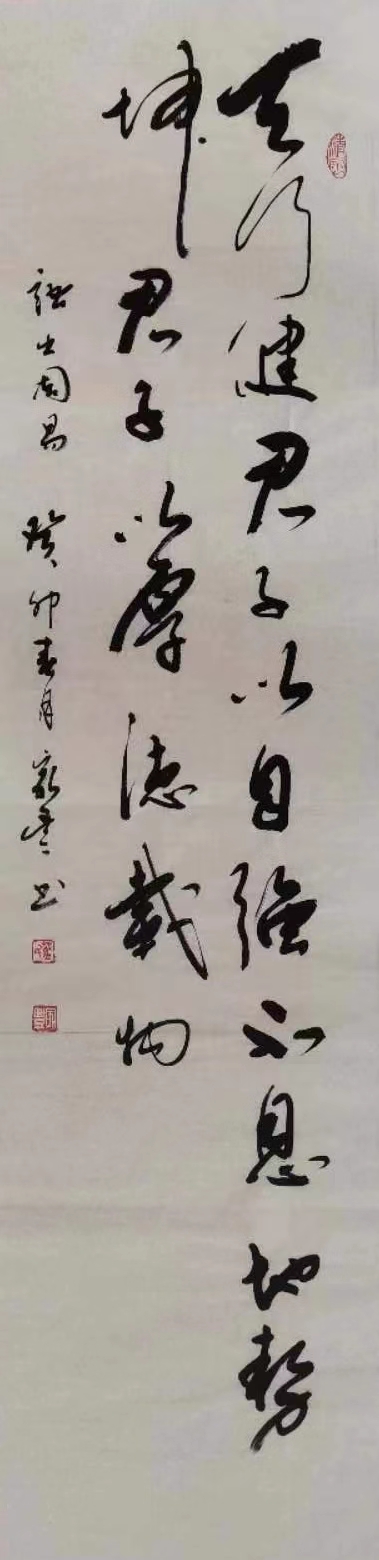 天行健君子以自强不息地势
坤君子以厚德载物
语出周易 癸卯春月 书